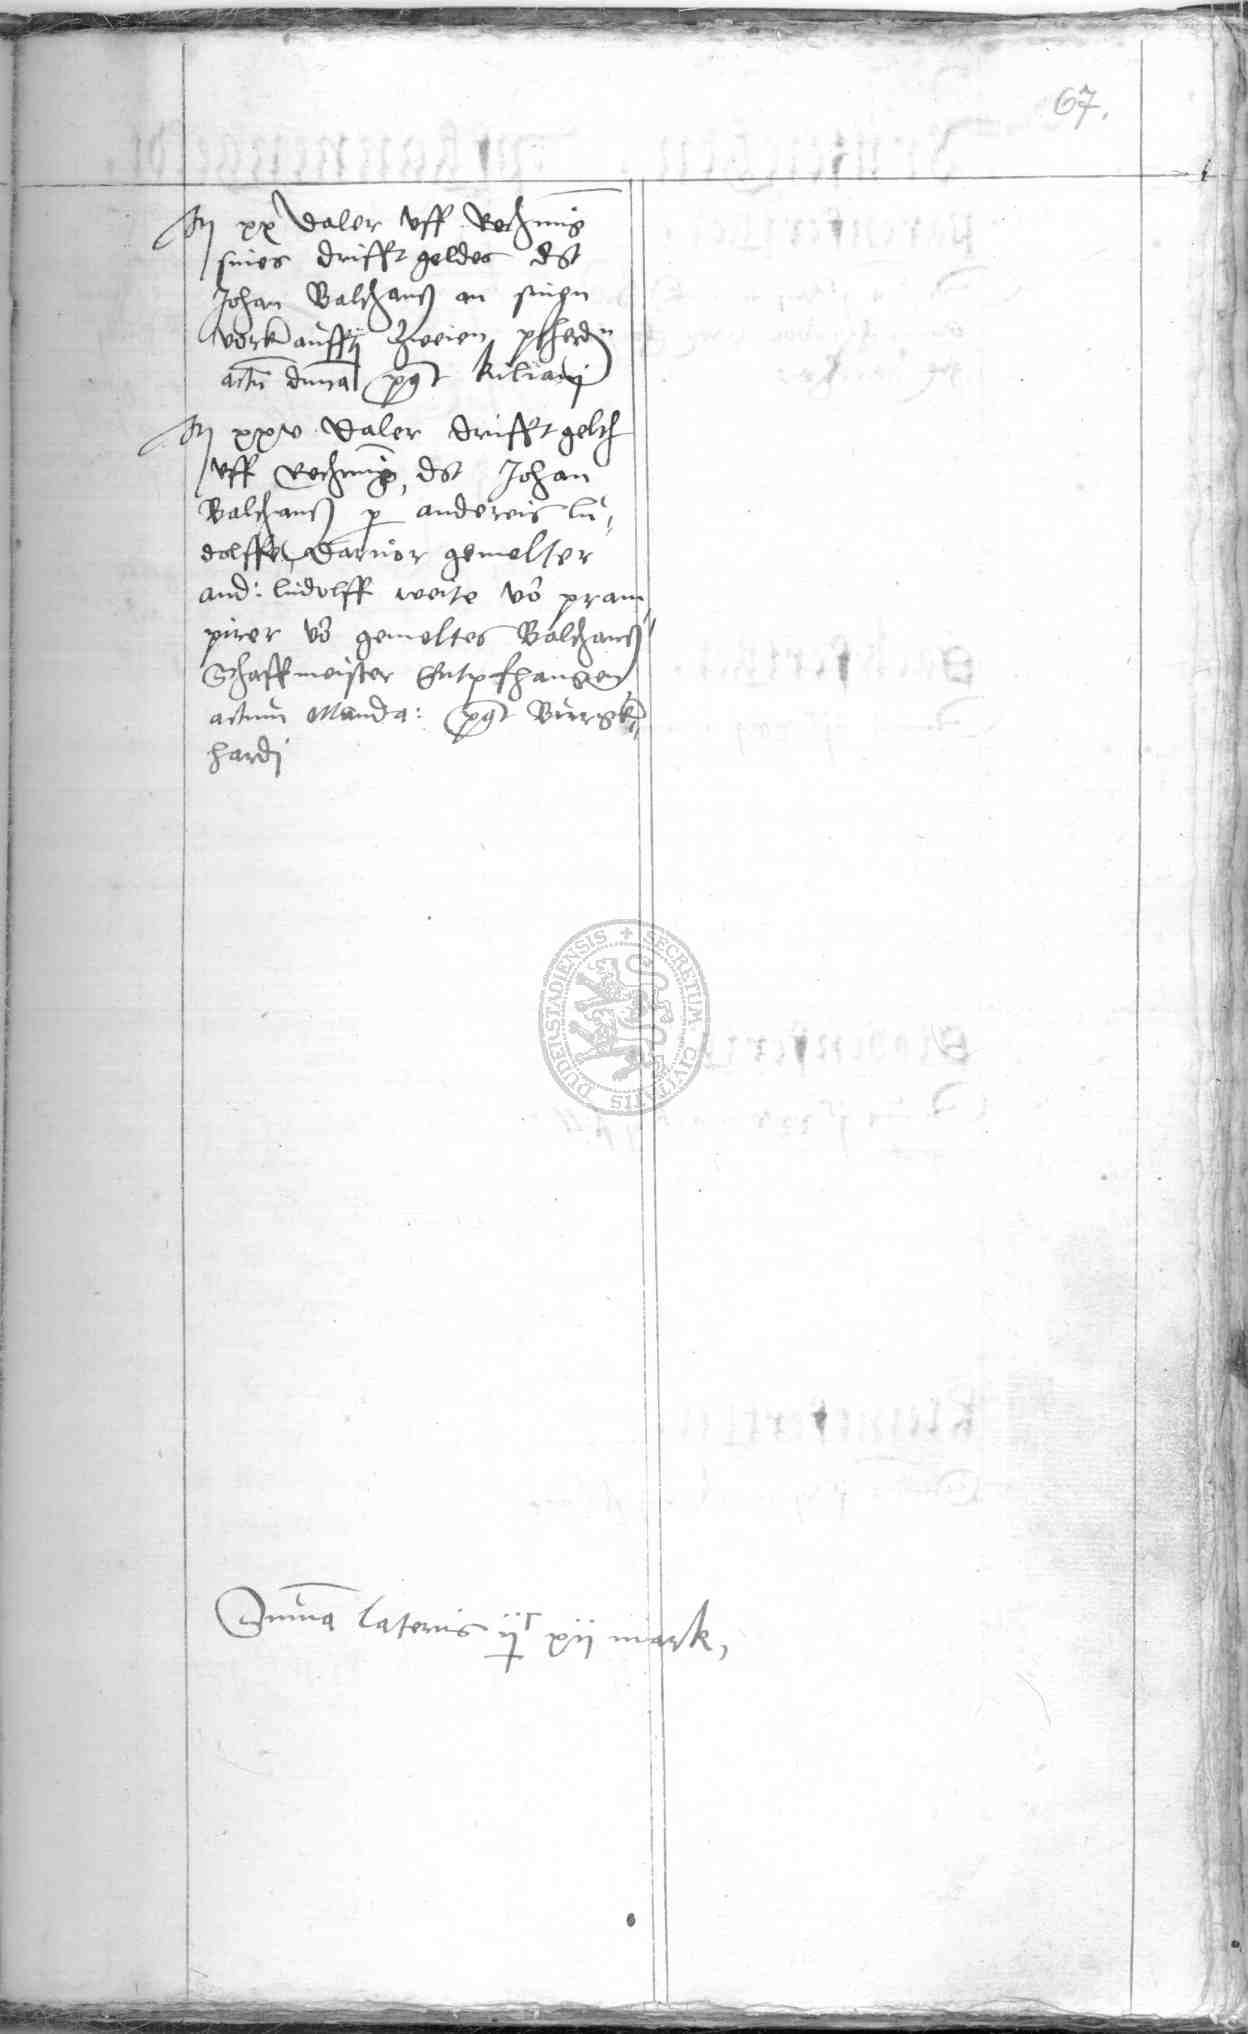 67.
Itz xx daler uff Rechnung
sines drifft geldes dst
Johan Balchans an singn
vorkaufftz zweien pherdn
actu dnica pꝰt kiliani
Itz xxv daler drifft gelth
uff Rechnung, dst Johan
Balchans p andereis lu-
dolffe, darvor gemelter
and: ludolff weite vo
pirer vo gemeltes Balchans
Schaffmeister Entpfhangen
actum Manda: pꝰt Burgk-
hardi
Suma lateris xii mark,
DUDERSTADIENSIS + SECRETUM CIVITATIS